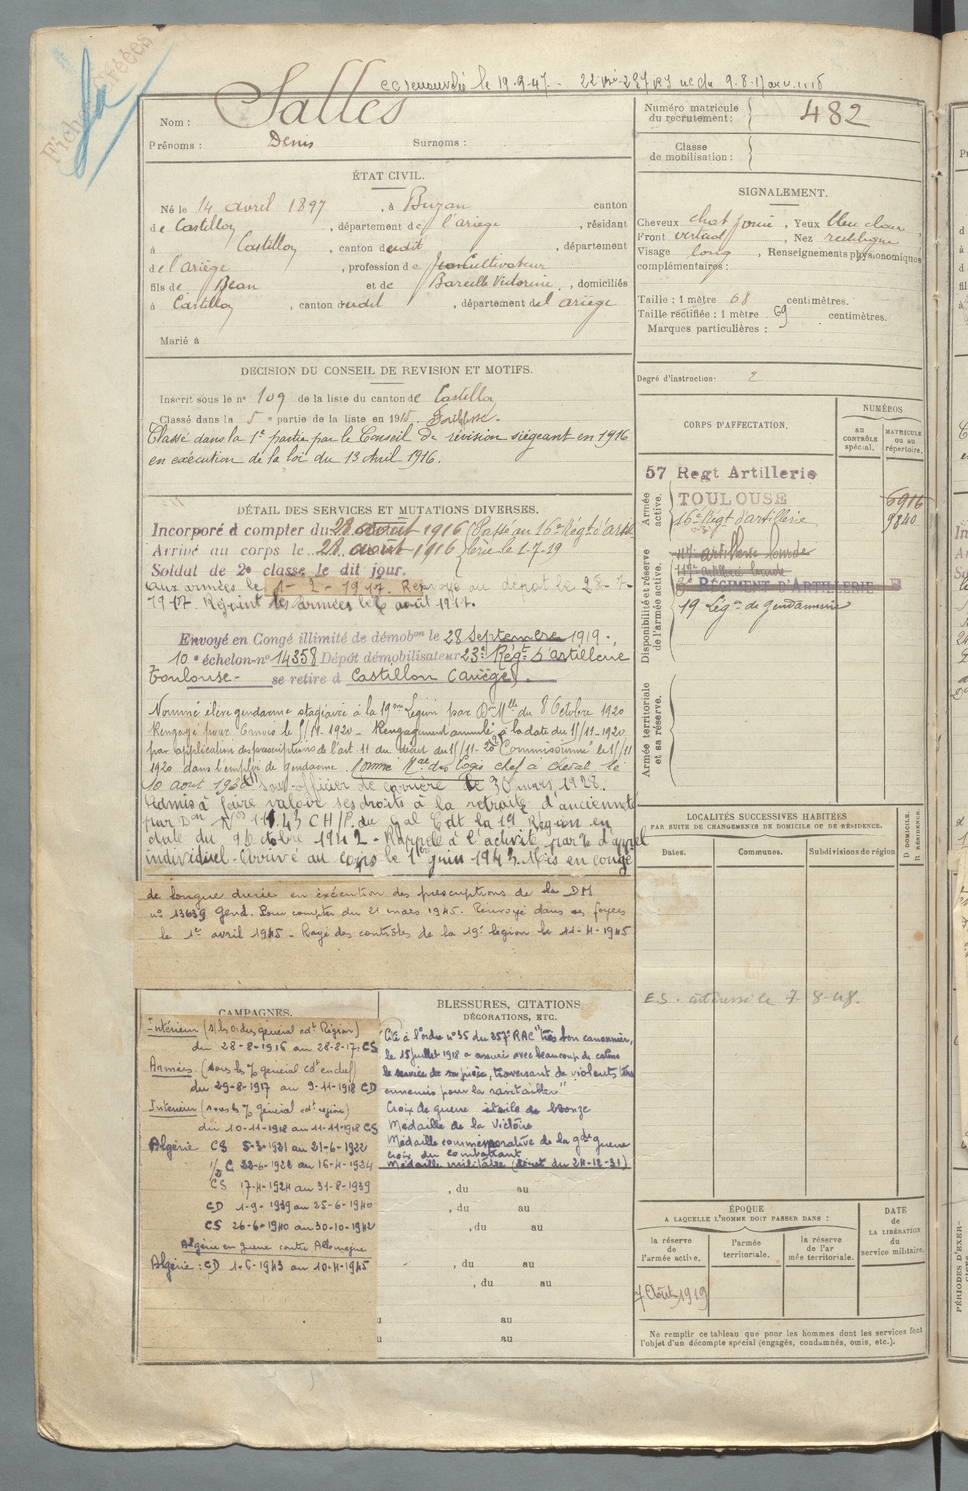 Nom : Salles
Prénoms : Denis Surnoms :
ÉTAT CIVIL.
Né le 14 avril 1897, à Buzan canton
de Castillon, département de l'ariège, résidant
à Castillon, canton dudit, département
de l'ariège, profession de Cultivateur
fils de Jean et de Bareille Victorine, domiciliés
à Castillon, canton dudit, département de l'ariège
Marié à
DECISION DU CONSEIL DE REVISION ET MOTIFS.
Inscrit sous le n° 109 de la liste du canton de Castillon
Classé dans la 5e partie de la liste en 1915. Faiblesse.
Classé dans la 1e partie par le Conseil de révision siégeant en 1916
en exécution de la loi du 13 Avril 1916.
DÉTAIL DES SERVICES ET MUTATIONS DIVERSES.
Incorporé à compter du 28 août 1916 (Passé au 16e Régt d'artil
Arrivé au corps le 28 août 1916 lerie le 1-7-19
Soldat de 2e classe le dit jour.
aux armées le 1-2-1917. Renvoyé au dépôt le 28-7-
1917. Rejoint les armées le 6 août 1917.
Envoyé en Congé illimité de démobon le 28 Septembre 1919.
10e échelon-n° 14358 Dépôt démobilisateur 23e Régt d'artillerie
Toulouse - se retire à Castillon (Ariège).
Nommé élève gendarme stagiaire à la 19me Légion par Don Mlle du 8 Octobre 1920
Rengagé pour 6 mois le 5/11-1920 - Rengagement annulé à la date du 15/11-1920
par application des prescriptions de l'art 11 du décret du 15/11- Commissionné le 15/11
1920 dans l'emploi de gendarme. Nommé Mal des Logis chef à cheval le
10 août 193 sous-officier de carrière le 30 mars 1928.
Admis à faire valoir ses droits à la retraite d'ancienneté
par Don N° CH/P. du Gal Cdt la 19 Région en
date du 9 Octobre 1942 - Rappelé à l'activité par O. d'appel
individuel - Arrivé au corps le 1er juin 1943. Mis en congé
de longue durée en exécution des prescriptions de la DM
n° 13639 Gend. Pour compter du 21 mars 1945. Renvoyé dans ses foyers
le 1er avril 1945 - Rayé des contrôles de la 19e légion le 11-4-1945
CAMPAGNES.
Intérieur (s/les ordres général cdt Région)
du 28-8-1916 au 28-8-17: CS
Armées (sous les % général cdt en chef)
du 29-8-1917 au 9-11-1918 CD
Intérieur (sous les % général cdt région)
du 10-11-1918 au 11-11-1918 CS
Algérie CS 5-3-1921 au 21-6-1922
1/2 C 22-6-1922 au 16-4-1924
CS 17-4-1924 au 31-8-1939
CD 1-9-1939 au 25-6-1940
CS 26-6-1940 au 30-10-1942
Algérie en guerre contre Allemagne
Algérie : CD 1-6-1943 au 10-4-1945
BLESSURES, CITATIONS
DÉCORATIONS, ETC.
Cité à l'ordre n° 35 du 257e RAC "très bon canonnier,
le 15 juillet 1918 a assuré avec beaucoup de calme
le service de sa pièce, traversant de violents tirs
ennemis pour la ravitailler"
Croix de guerre étoile de bronze
Médaille de la Victoire
Médaille commémorative de la gde guerre
Croix du combattant
Médaille militaire (décret du 24-12-31)
, du au
, du au
, du au
, du au
, du au
au
au
Numéro matricule
du recrutement : 482
Classe
de mobilisation :
SIGNALEMENT.
Cheveux chat foncé, Yeux bleu clair,
Front vertical, Nez rectiligne
Visage long, Renseignements physionomiques
complémentaires :
Taille : 1 mètre 68 centimètres.
Taille rectifiée : 1 mètre 69 centimètres.
Marques particulières :
Degré d'instruction : 2
CORPS D'AFFECTATION.
NUMÉROS
AU CONTRÔLE spécial.
MATRICULE ou au répertoire.
Armée active.
57 Regt Artillerie
TOULOUSE 6916
16e Régt d'artillerie 9340
Disponibilité et réserve de l'armée active.
117e artillerie lourde
117e artillerie lourde
RÉGIMENT D'ARTILLERIE
19 Légon de gendarmerie
Armée territoriale et sa réserve.
LOCALITÉS SUCCESSIVES HABITÉES
PAR SUITE DE CHANGEMENTS DE DOMICILE OU DE RÉSIDENCE.
Dates. Communes. Subdivisions de région D. DOMICILE. R. RÉSIDENCE.
E.S. adressé le 7-8-48.
ÉPOQUE
A LAQUELLE L'HOMME DOIT PASSER DANS :
la réserve de l'armée active.
l'armée territoriale.
la réserve de l'armée territoriale.
DATE de LA LIBÉRATION du service militaire.
7 Août 1919
Ne remplir ce tableau que pour les hommes dont les services font
l'objet d'un décompte spécial (engagés, condamnés, omis, etc.).